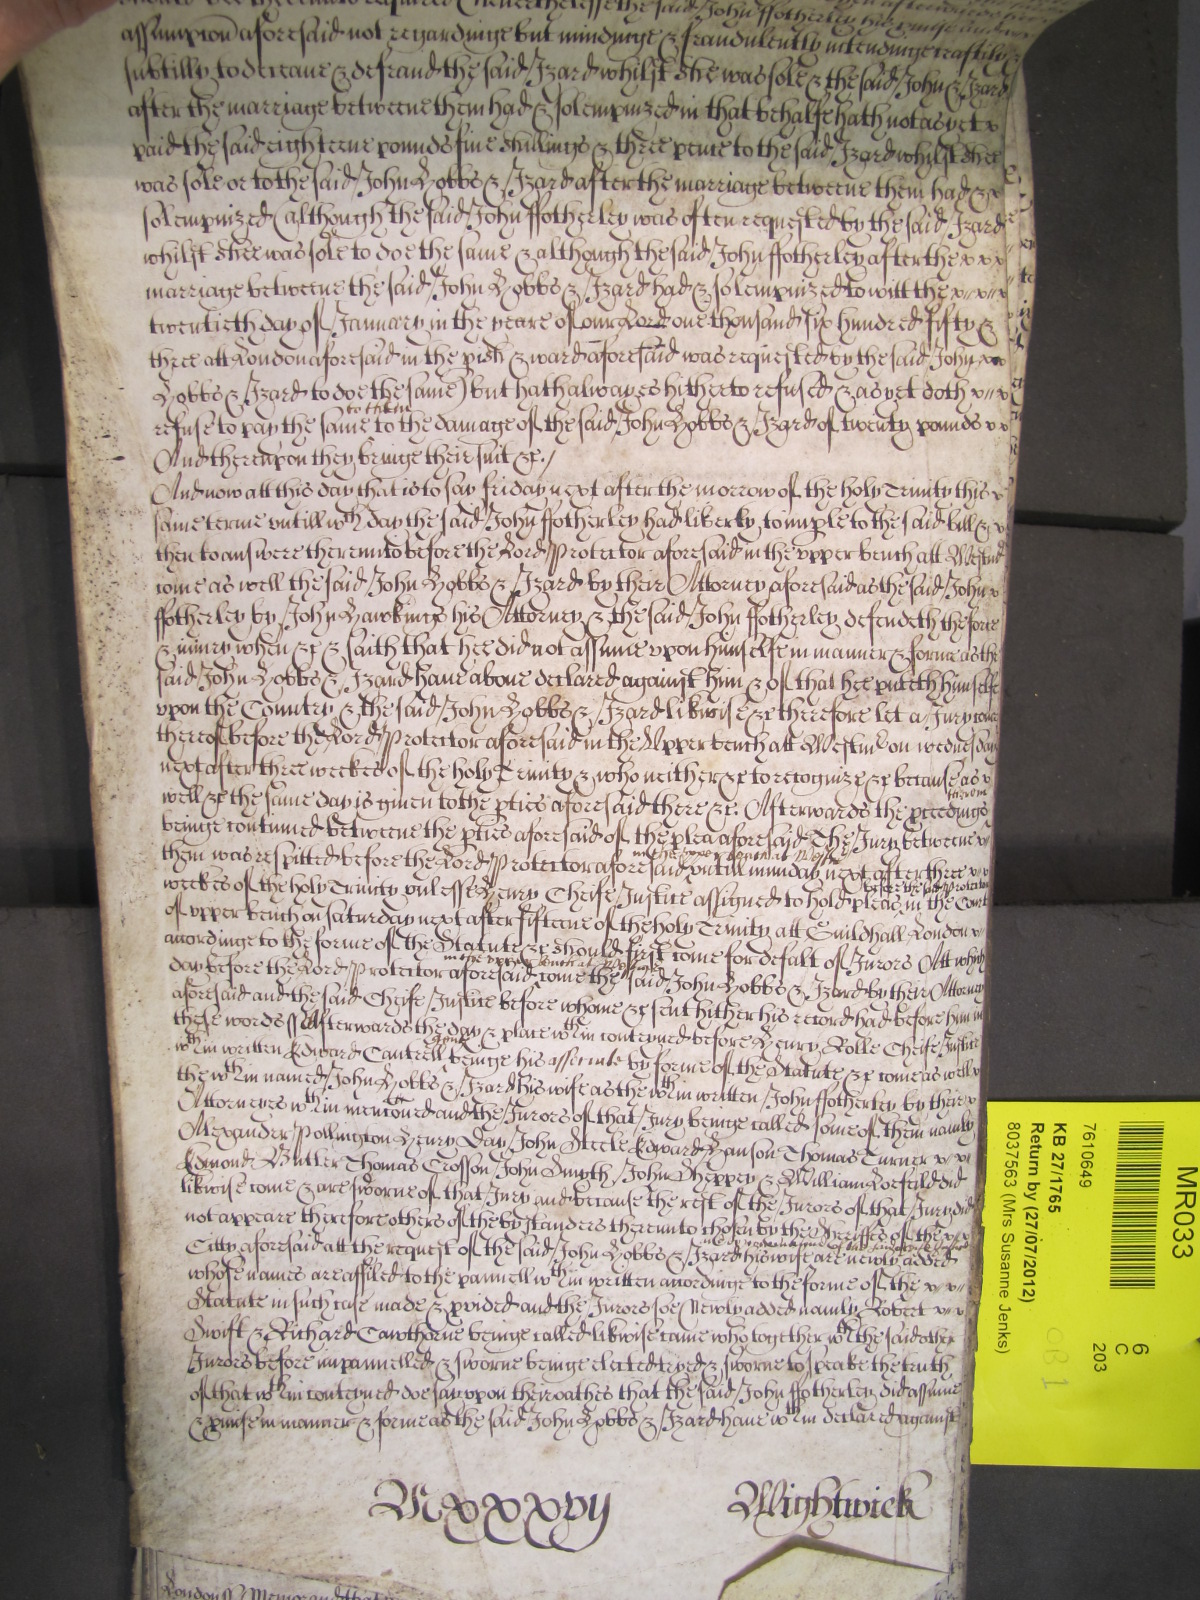 should bee thereunto required Neverthelesse the said John ffotherley his promise and
assumption aforesaid not regardinge but mindinge & fraudulently intendinge craftily &
subtilly to deceave & defraud the said Izard whilst shee was sole & the said John & Izard
after the marriage betweene them had & solempnized in that behalfe hath not as yet x
paid the said eighteene pounds five shillings & three pence to the said Izard whilst shee
was sole or to the said John Hobbs & Izard after the marriage betweene them had & x
solempnized (although the said John ffotherley was often requested by the said Izard
whilst shee was sole to doe the same & although the said John ffotherley after the x x x
marriage betweene the said John Hobbs & Izard had & solempnized to witt the x x x
twentieth day of January in the yeare of our Lord one thousand six hundred fifty &
three att London aforesaid in the pish & ward aforesaid was requested by the said John x x
Hobbs & Izard to doe the same) but hath alwayes hitherto refused & as yet doth x x x
refuse to pay the same to them to the damage of the said John Hobbs & Izard of twenty pounds x x
And thereupon they bringe their suit &c./
And now att this day that is to say friday next after the morrow of the holy Trinity this x
same terme untill wch day the said John ffotherley had liberty to imple to the said bill & x
then to answere thereunto before the Lord Protector aforesaid in the upper bench att Westmr
come as well the said John Hobbs & Izard by their Attorney aforesaid as the said John x
ffotherley by John Hawkings his Attorney & the said John ffotherley defendeth the force
& iniury when &c & saith that hee did not assume upon himselfe in manner & forme as the
said John Hobbs & Izard have above declared against him & of that hee putteth himselfe
upon the Country & the said John Hobbs & Izard likwise &c therefore let a Jury come
thereof before the Lord Protector aforesaid in the Upper bench att Westmr on wednesday
next after three weekes of the holy Trinity & who neither &c to recognize &c because as x
well &c the same day is given to the pties aforesaid there &c. Afterwards the pcedings therein
beinge continued betweene the pties aforesaid of the plea aforesaid The Jury betweene x
them was respitted before the Lord Protector aforesaid in the upper bench at Westmr untill munday next after three x x
weekes of the holy Trinity unlesse Henry Cheife Justice assigned to hold pleas before the Lord Protector in the Court
of upper bench on saturday next after fifteene of the holy Trinity att Guildhall London x
accordinge to the forme of the Statute &c should first come for default of Jurors Att which
day before the Lord Protector aforesaid in the upper bench at Westmr come the said John Hobbs & Izard by their Attorney
aforesaid and the said Cheife Justice before whome &c sent hither his record had before him in
these words ss Afterwards the day & place wthin conteyned before Henry Rolle Cheife Justice
wthin written Edward Cantrell gent beinge his associate by forme of the Statute &c come as well x
the wthin named John Hobbs & Izard his wife as the wthin written John ffotherley by their x
Attorneyes wthin mencōned and the Jurors of that Jury beinge called some of them namly
Alexander Pollington Henry Day John Steele Edward Hanson Thomas Turner x x
Edmond Butler Thomas Crosson John Smyth John Sheppey & William Loefeild did
likwise come & are sworne of that Jury and because the rest of the Jurors of that Jury did
not appeare therefore others of the bystanders thereunto chosen by the Sheriffes of the x x
Citty aforesaid att the request of the said John Hobbs & Izard his wife are newly added
whose names are affiled to the pannell wthin written accordinge to the forme of the x x
Statute in such case made & pvided and the Jurors soe Newly added namly Robert x x
Swift & Richard Cawthorne beinge called likwise came who together wth the said other
Jurors before impannelled & sworne beinge elected tryed & sworne to speake the truth
of that wthin conteyned doe say upon their oathes that the said John ffotherley did assume
& pmise in manner & forme as the said John Hobbs & Izard have wthin declared against
Mxxxxvy Wightwick
London ss Memorand that
MR033
6
C
203
7610649
KB 27/1765
Return by (27/07/2012)
8037563 (Mrs Susanne Jenks)
OB 1